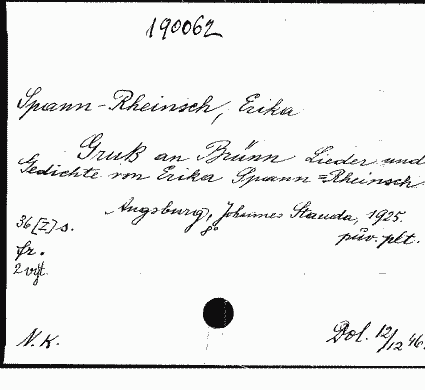 190062
Spann-Rheinsch, Erika
Gruß an Brünn Lieder und
Gedichte von Erika Spann=Rheinsch
Augsburg, Johannes Stauda, 1925.
36 [2] s. 8° pův. plt.
fr.
2 vyt.
N.K. Dol. 12/12 46.